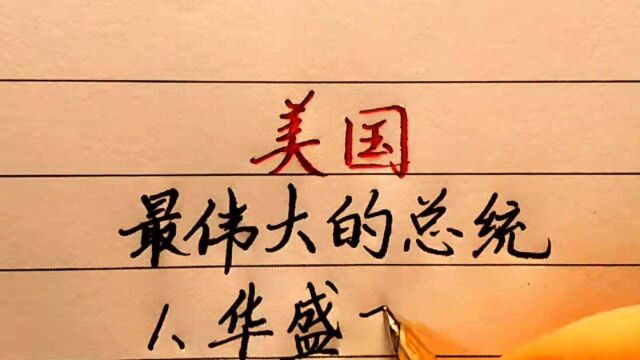 美国
最伟大的总统
1、华盛